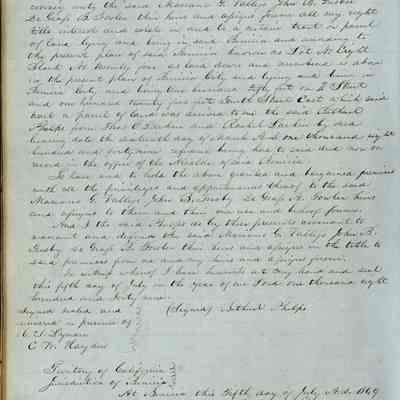 convey unto the said Mariano G. Vallejo John B. Frisbie
De Graff B. Fowler their heirs and assigns forever all my right
title interest and estate in and to a certain tract or parcel
of land lying and being in said Benicia and according to
the present plan of said Benicia known as Lot No Eight
Block No Twenty four as laid down and numbered
in the present plan of Benicia City and lying and being in
Benicia City and being one hundred fifty feet on D Street
and one hundred twenty five feet South Street East which said
lot a parcel of land was deeded to me the said Bethuel
Phelps from Thos O Larkin and Rachel Larkin by deed
bearing date the seventh day of A.D. one thousand eight
hundred and forty nine reference being had to said deed now on
record in the office of the Alcalde of said Benicia
To have and to hold the above granted and bargained premises
with all the privileges and appurtenances thereof to the said
Mariano G. Vallejo John B. Frisby De Graff B. Fowler heirs
and assigns to them and their own use and behoof forever.
And I the said Phelps do by these presents covenant to
warrant and defend the said Mariano G. Vallejo John B.
Frisby De Graff B. Fowler their heirs and assigns in the title to
said premises from me and my heirs and assigns forever.
In witness whereof I have hereunto set my hand and seal
this fifth day of July in the year of our Lord one thousand eight
hundred and forty nine.
Signed sealed and
delivered in presence of
(Signed) Bethuel Phelps
C. S. Lyman
C. W. Hayden
Territory of California
Jurisdiction of Benicia
At Benicia this Fifth day of July A.D. 1849